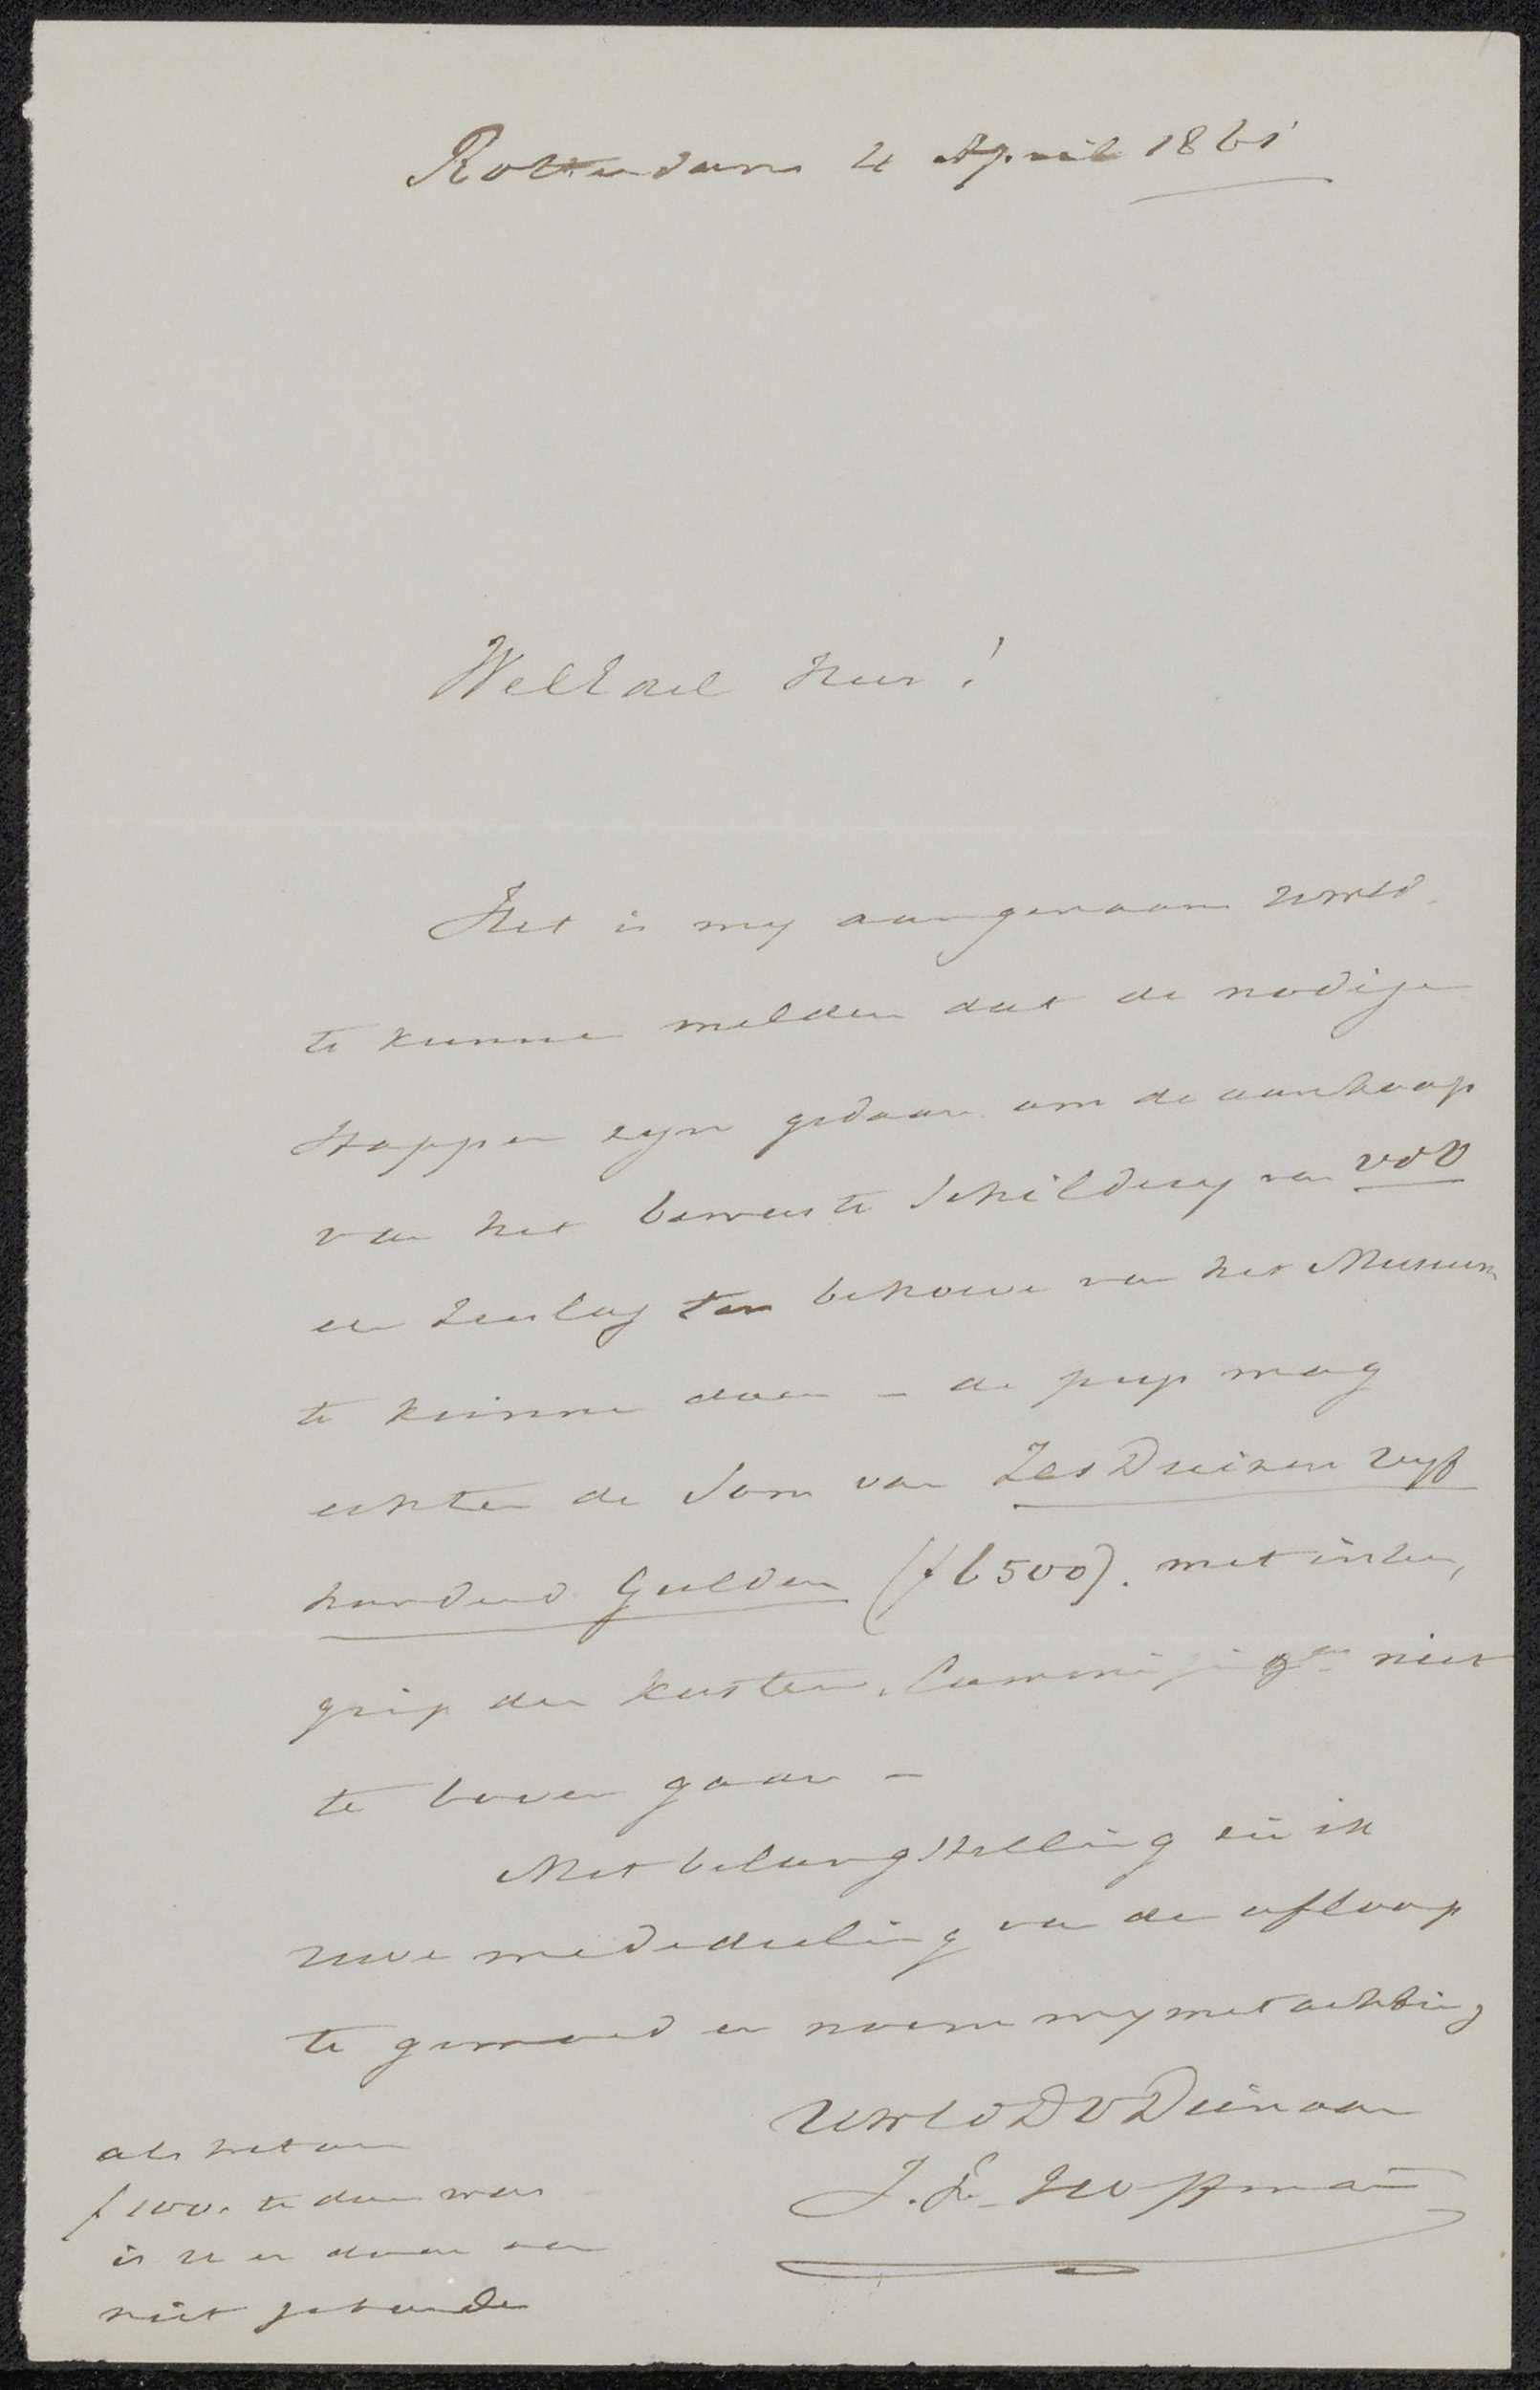 Rotterdam 4 April 1861
WelEdel Heer!
Het is my aangenaam UWEd.
te kunnen melden dat de nodige
stappen zyn gedaan om de aankoop
van het bewuste Schildery van vdV
en te behoeve van het Museum
te kunnen doen – de prys mag
echter de Som van ZesDuizend vyf
honderd Gulden (f 6500). met inbe,
grip der kosten, niet
te boven gaan –
Met belangstelling zie ik
uwe mededeeling van de afloop
te gemoed en noem my met achting
UWEdDVDienaar
J. F. Hoffman
als het om
f 100. te doen was
is u er daar aan
niet gebonden